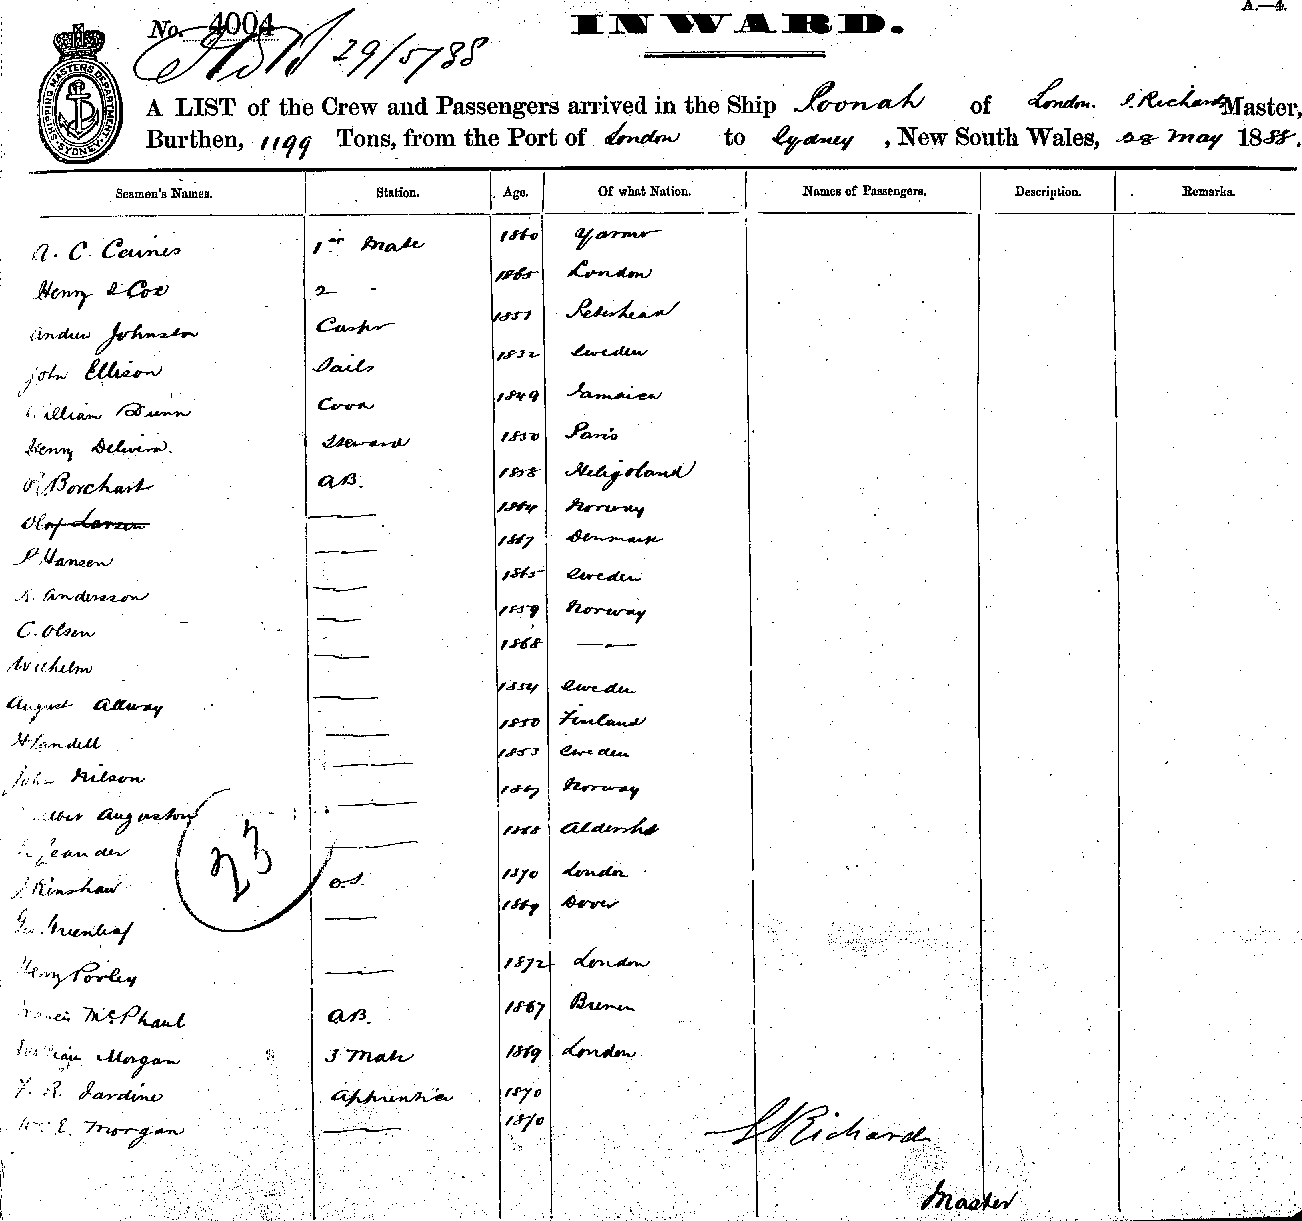 No. 4004
INWARD.
A.—4.
29/5/88
SHIPPING MASTERS DEPARTMENT SYDNEY
A LIST of the Crew and Passengers arrived in the Ship Poonah of London. Richards Master,
Burthen, 1199 Tons, from the Port of London to Sydney, New South Wales, 28 May 1888.
Seamen's Names. Station. Age. Of what Nation. Names of Passengers. Description. Remarks.
A. C. Caines 1st Mate 1860
Henry Cox 2 - 1865 London
Andrew Johnston 1851 Peterhead
John Ellison Sails 1832 Sweden
William Dunn Cook 1849 Jamaica
Henry Steward 1850 Paris
Borchart AB. 1858 Heligoland
Olaf Larsen —— 1864 Norway
Hansen —— 1867 Denmark
Andersson —— 1865 Sweden
C. Olsen —— 1859 Norway
Wilhelm —— 1868 —"—
August —— 1854 Sweden
—— 1850 Finland
John Nilson —— 1853 Sweden
—— 1867 Norway
—— 1868 Aldershot
O.S. 1870 London
Greenleaf —— 1869 Dover
Henry —— 1872 London
McPhaul AB. 1867 Bremen
William Morgan 3 Mate 1869 London
F. R. Jardine Apprentice 1870
Wm E. Morgan —— 1870
23
Richard
Master